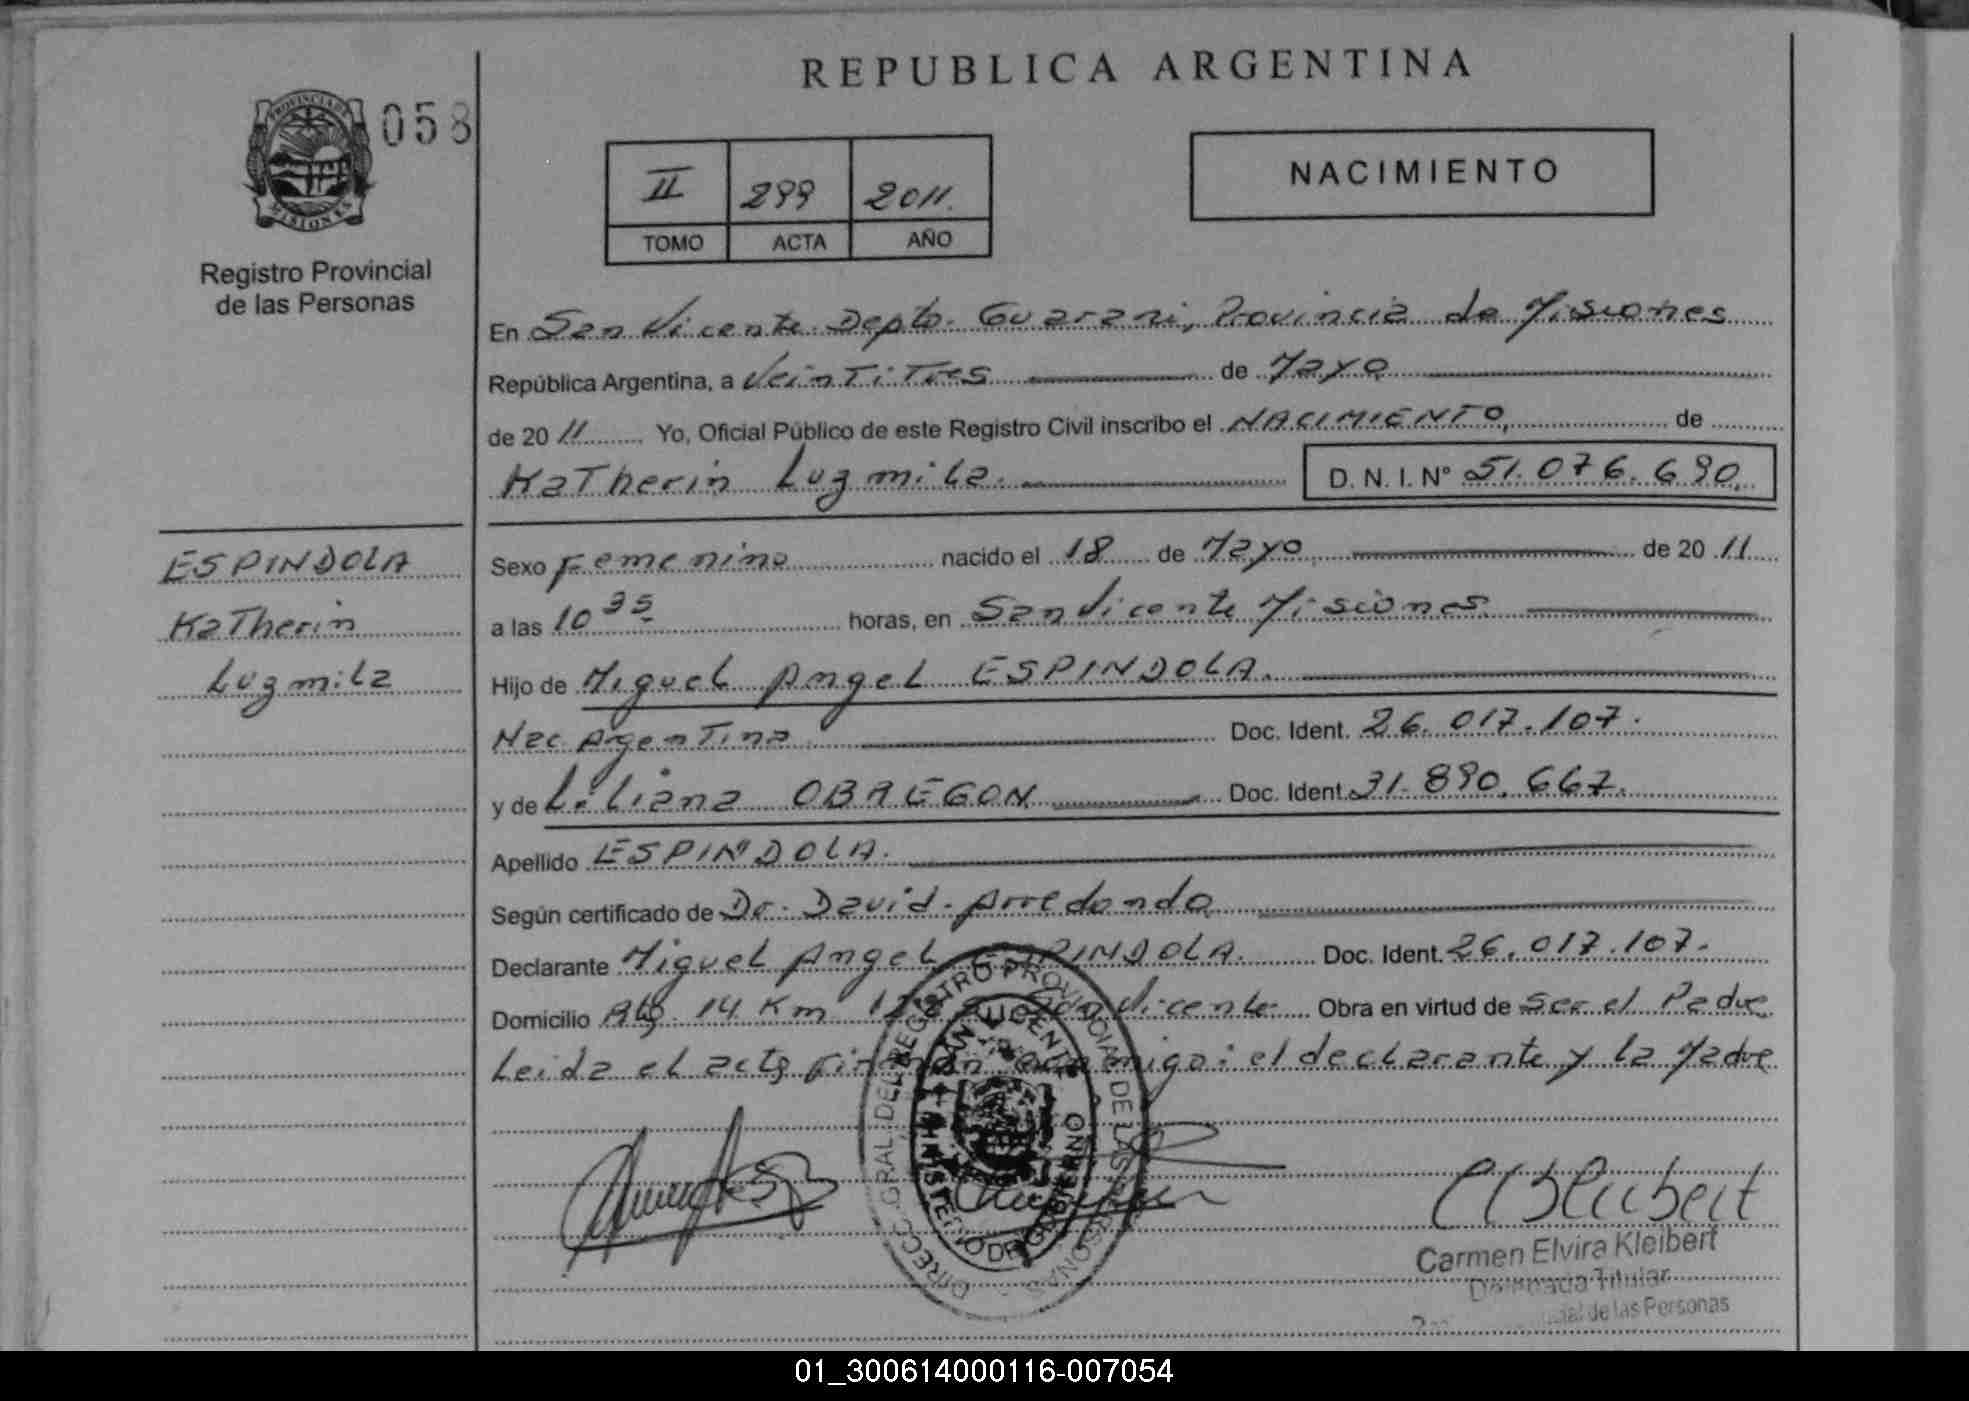 REPUBLICA ARGENTINA
PROVINCIA DE
MISIONES
058
Registro Provincial
de las Personas
II 299 2011.
TOMO ACTA AÑO
NACIMIENTO
En San Vicente Depto. Guarani, Provincia de Misiones
República Argentina, a Veintitres de Mayo
de 20 11 Yo, Oficial Público de este Registro Civil inscribo el NACIMIENTO, de
Katherin Luzmila. D. N. I. N° 51.076.690.
ESPINDOLA
Katherin
Luzmila
Sexo Femenino nacido el 18 de Mayo de 20 11
a las 10 35 horas, en San Vicente Misiones
Hijo de Miguel Angel ESPINDOLA.
Nac Argentina Doc. Ident. 26.017.107.
y de Liliana OBREGON Doc. Ident. 31.890.667.
Apellido ESPINDOLA.
Según certificado de Dr. David Arredondo
Declarante Miguel Angel ESPINDOLA. Doc. Ident. 26.017.107.
Domicilio Rta. 14 Km San Vicente Obra en virtud de Ser el Padre
Leida el acta firman conmigo: el declarante y la Madre
DIRECC. GRAL. DEL REGISTRO PROVINCIAL DE LAS PERSONAS
SAN VICENTE
MINISTERIO DE GOBIERNO
Carmen Elvira Kleibert
Delegada Titular
de las Personas
01_300614000116-007054